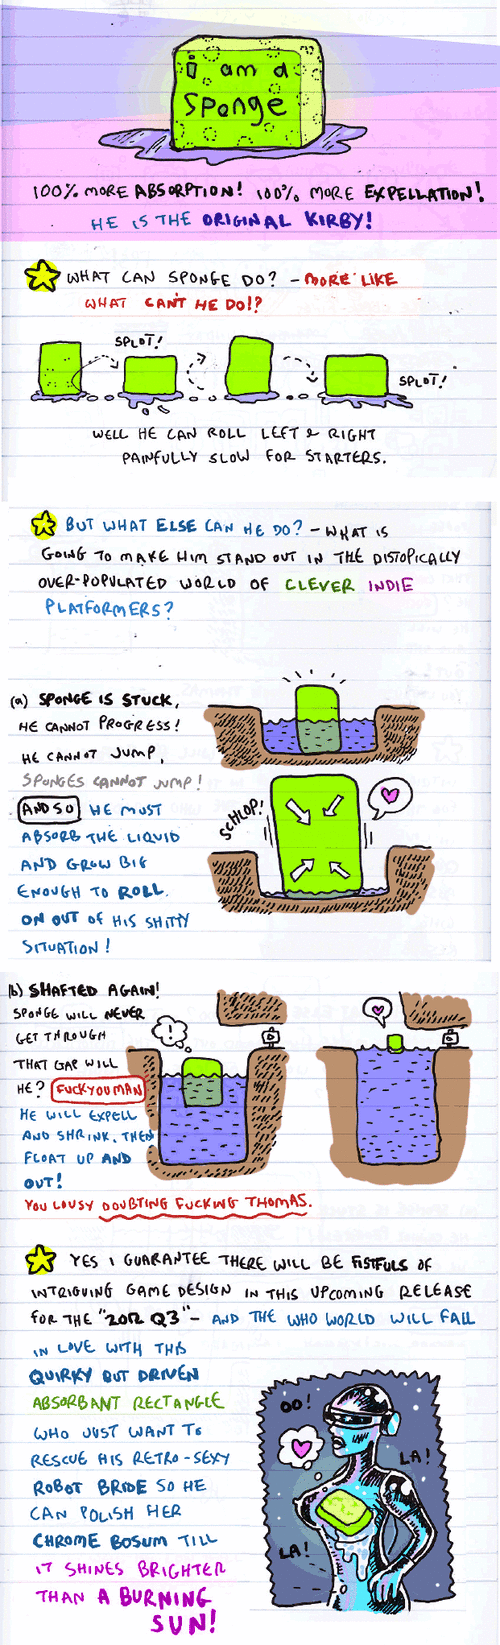 i am a
sponge
100% more ABSORPTION! 100% more EXPELLATION!
HE IS THE ORIGINAL KIRBY!
WHAT CAN SPONGE DO? - MORE LIKE
WHAT CAN'T HE DO!?
SPLOT!
SPLOT!
WELL HE CAN ROLL LEFT & RIGHT
PAINFULLY SLOW FOR STARTERS.
BUT WHAT ELSE CAN HE DO? - WHAT IS
GOING TO MAKE HIM STAND OUT IN THE DISTOPICALLY
OVER-POPULATED WORLD OF CLEVER INDIE
PLATFORMERS?
(a) SPONGE IS STUCK,
HE CANNOT PROGRESS!
HE CANNOT JUMP,
SPONGES CANNOT JUMP!
AND SO HE MUST
ABSORB THE LIQUID
AND GROW BIG
ENOUGH TO ROLL
ON OUT OF HIS SHITTY
SITUATION!
SCHLOP!
(b) SHAFTED AGAIN!
SPONGE WILL NEVER
GET THROUGH
THAT GAP WILL
HE? FUCK YOU MAN
HE WILL EXPELL
AND SHRINK, THEN
FLOAT UP AND
OUT!
YOU LOUSY DOUBTING FUCKING THOMAS.
!
YES I GUARANTEE THERE WILL BE FISTFULS OF
INTRIGUING GAME DESIGN IN THIS UPCOMING RELEASE
FOR THE "2012 Q3" - AND THE WHO WORLD WILL FALL
IN LOVE WITH THIS
QUIRKY BUT DRIVEN
ABSORBANT RECTANGLE
WHO JUST WANT TO
RESCUE HIS RETRO-SEXY
ROBOT BRIDE SO HE
CAN POLISH HER
CHROME BOSUM TILL
IT SHINES BRIGHTER
THAN A BURNING
SUN!
OO!
LA!
LA!